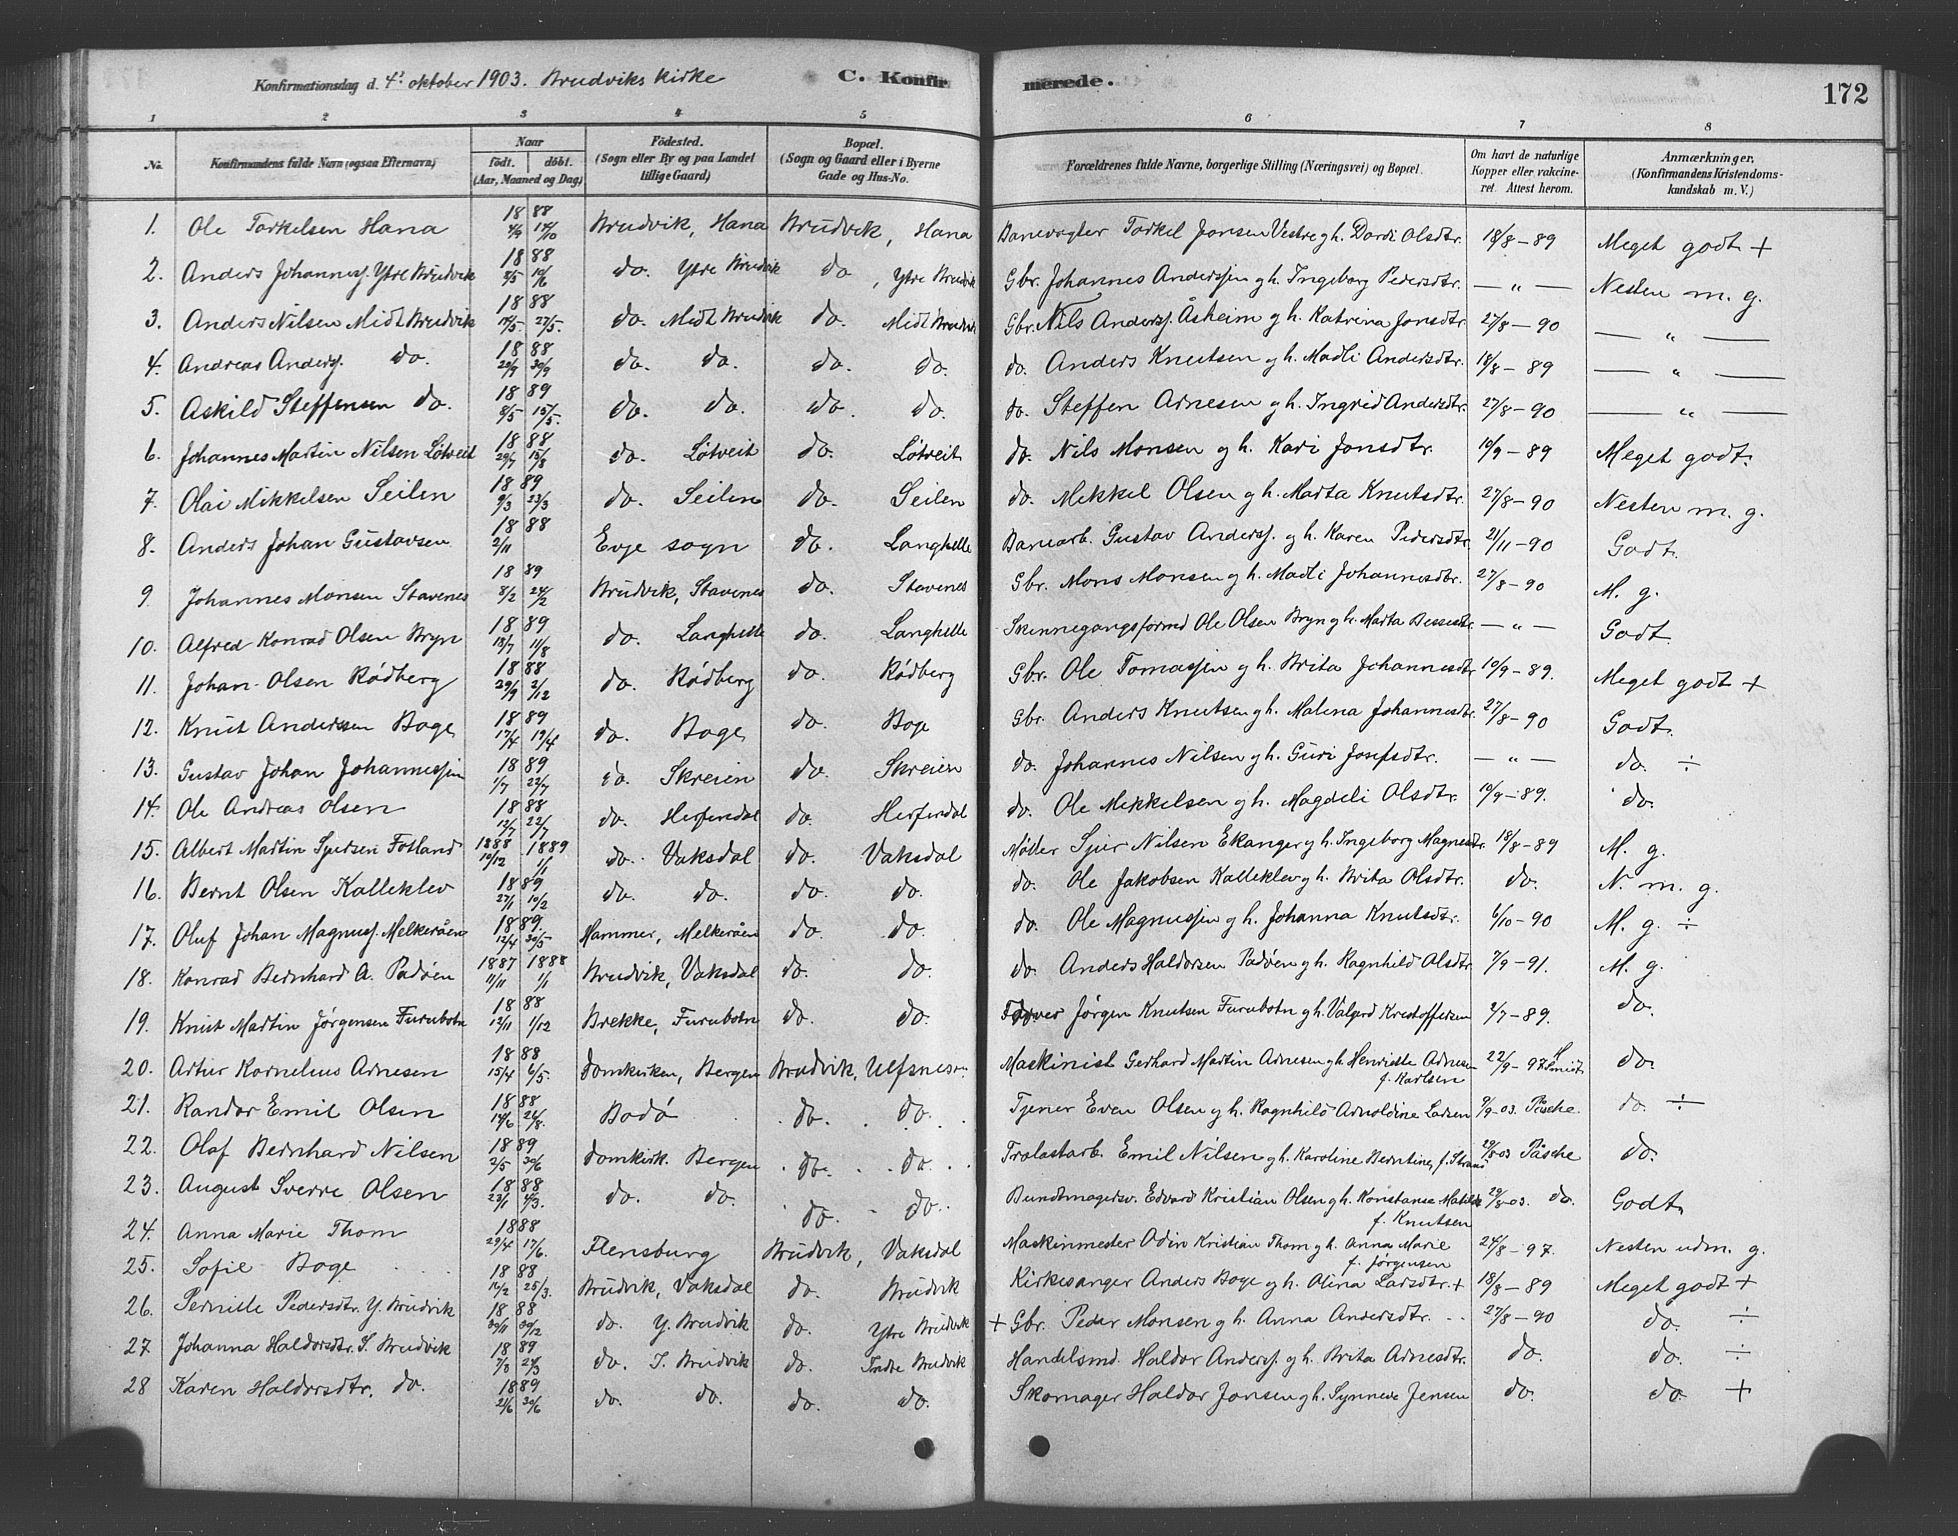 Konfirmationsdag d. 4de oktober 1903. Brudviks kirke C. Konfirmerede. 172
1 2 3 4 5 6 7 8
No. Konfirmandens fulde Navn (ogsaa Efternavn) Naar født. døbt. (Aar, Maaned og Dag) Fødested. (Sogn eller By og paa Landet tillige Gaard) Bopæl. (Sogn og Gaard eller i Byerne Gade og Hus-No. Forældrenes fulde Navne, borgerlige Stilling (Næringsvei) og Bopæl. Om havt de naturlige Kopper eller vakcineret. Attest herom. Anmærkninger. (Konfirmandens Kristendomskundskab m. V.)
1. Ole Torkelsen Hana 1888 4/9 14/10 Brudvik, Hana Brudvik, Hana Banevogter Torkel Jonsen Vestre gh. Dordi Olsdtr. 18/8-89 Meget godt +
2. Anders Johannesj. Ytre Brudvik 1888 8/5 10/6 do. Ytre Brudvik do, Ytre Brudvik Gbr. Johannes Andersjen gh. Ingeborg Pedersdtr. — „ — Nesten m. g.
3. Anders Nilsen Midt Brudvik 1888 27/5. do. Midt Brudvik do. Midt Brudvik Gbr. Nils Andersj. Åsheim gh. Katrina Jonsdtr. 27/8-90 — „ —
4. Andreas Andersj. do. 1888 20/9 30/9 do. do. do. do. do. Anders Knutsen gh. Madli Andersdtr. 18/8-89 — „ —
5. Askild Steffensen do. 1889 8/5 15/5. do. do. do. do. do. Steffen Arnesen gh. Ingrid Andersdtr. 27/8-90 — „ —
6. Johannes Martin Nilsen Løtveit 1888 29/7 15/8 do. Løtveit do. Løtveit do. Nils Monsen gh. Kari Jonsdtr. 10/9-89 Meget godt.
7. Olai Mikkelsen Seilen 1889 9/3 23/3 do. Seilen do. Seilen do. Mikkel Olsen gh. Marta Knutsdtr. 27/8-90 Nesten m. g.
8. Anders Johan Gustavsen 1888 2/11 Evje sogn do. Langhelle Banearb. Gustav Andersj. gh. Karen Pedersdtr. 21/11-90 Godt.
9. Johannes Monsen Stavenes 1889 8/2 24/2 Brudvik, Stavenes do. Stavenes Gbr. Mons Monsen gh. Madli Johannesdtr. 27/8-90 M. g.
10. Alfred Konrad Olsen Bryn 1889 13/7 11/8 do. Langhelle do. Langhelle Skinnegangsformd Ole Olsen Bryn gh. Marta — „ — Godt
11. Johan Olsen Rødberg 1888 29/9 2/12 do. Rødberg do. Rødberg Gbr. Ole Tomasjen gh. Brita Johannesdtr. 10/9-89. Meget godt +
12. Knut Anderssen Boge 1889 17/4 19/4 do. Boge do. Boge Gbr. Anders Knutsen gh. Malena Johannesdtr. 27/8-90 Godt.
13. Gustav Johan Johannesjen 1889 1/7 22/7 do. Skreien do. Skreien do. Johannes Nilsen gh. Guri Josefsdtr. — „ — do. ÷
14. Ole Andreas Olsen 1888 12/7 22/7 do. Herfindal do. Herfindal do. Ole Mikkelsen gh. Magdeli Olsdtr. 10/9-89. do.
15. Albert Martin Sjursen Fotland 1888 1889 10/12 1/1 do. Vaksdal do. Vaksdal Møller Sjur Nilsen Ekanger gh. Ingeborg Magnesdtr. 18/8-89 M. g.
16. Bernt Olsen Kalleklev 1889 27/1 10/2 do. do. do. do. do. Ole Jakobsen Kalleklev gh. Brita Olsdtr. do. N. m. g.
17. Oluf Johan Magnusj. Melkeråen 1889. 12/4 30/5 Hammer, Melkeråen do. do. do. Ole Magnusjen gh. Johanna Knutsdtr. 6/10-90 M. g. ÷
18. Konrad Bernhard A. Padøen 1887 1888 11/11 1/1 Brudvik, Vaksdal do. do. do. Anders Haldorsen Padøen gh. Ragnhild Olsdtr. 7/9-91. M. g.
19. Knut Martin Jørgensen Furubotn 1888 12/11 1/12 Brekke, Furubotn do. do. Jørgen Knutsen Furubotn gh. Valgerd Kristoffersen 2/7-89. do.
20. Artur Kornelius Arnesen 1888 15/4 6/5. Domkirken, Bergen Brudvik, Ulfsnesø. Maskinist Gerhard Martin Arnesen gh. Henriette Arnesen f. Karlsen 22/9-97 H Smidt do.
21. Randor Emil Olsen 1888 14/6 26/8. Bodø do. do. Tjener Even Olsen gh. Ragnhild Arnoldine Larsen 9/9-03. Påsche. do. ÷
22. Olaf Bernhard Nilsen 1889 2/5 30/6 Domkirk. Bergen do. do. Trælastarb. Emil Nilsen gh. Karoline Berntine f. Strand 29/8 03 Påsche do.
23. August Sverre Olsen 1888 23/1 4/3. do. do. do. do. Bundtmagersv. Edvard Kristian Olsen gh. Konstanse Matilde f. Knutsen 29/8-03. do. Godt
24. Anna Marie Thom 1888 29/4 17/6. Flensburg Brudvik, Vaksdal Maskinmester Odin Kristian Thom gh. Anna Marie f. Jørgensen 24/8-97. Nesten udm. g.
25. Sofie Boge 1888 16/2 25/3. Brudvik, Vaksdal do. Brudvik Kirkesanger Anders Boge gh. Olina Larsdtr. + 18/8-89 Meget godt +
26. Pernille Pedersdtr. Y. Brudvik 1888 30/11 30/12 do. Y. Brudvik do. Ytre Brudvik + Gbr. Peder Monsen gh. Anna Andersdtr. 27/8-90 do. ÷
27 Johanna Haldorsdtr. I. Brudvik 1889 7/3 24/3 do. I. Brudvik do. Indre Brudvik Handelsmd. Haldor Andersj. gh. Brita Arnesdtr. do. do. ÷
28 Karen Haldorsdtr. do. 1889 2/6 30/6 do. do. do. do. Skomager Haldor Jonsen gh. Synneve Jensen do. do +